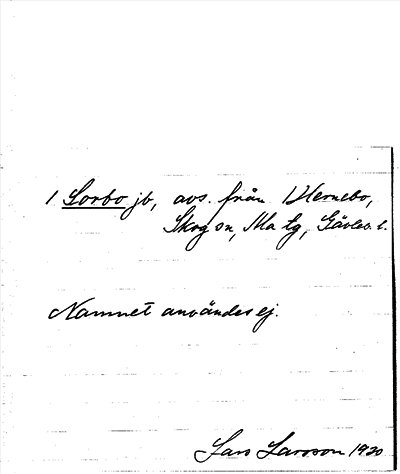 1 Sorbo jb, avs. från 1 Hernebo,
Skog sn, Ma tg, Gävleb. l.
Namnet användes ej.
Lars Larsson 1930